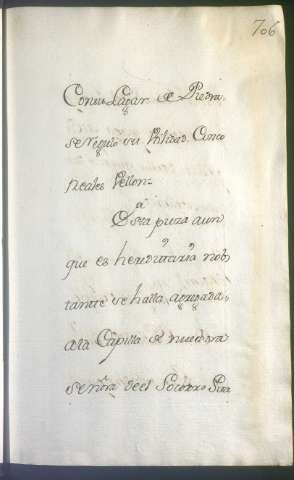 706
Con su Lagar de Piedra,
se regula su Utilidad Cinco
Reales Vellon=
a
Esta pieza aun
que es hereditaria nob
tante se halla agregada,
a la Capilla de nuestra
señora deel Socorro Sita